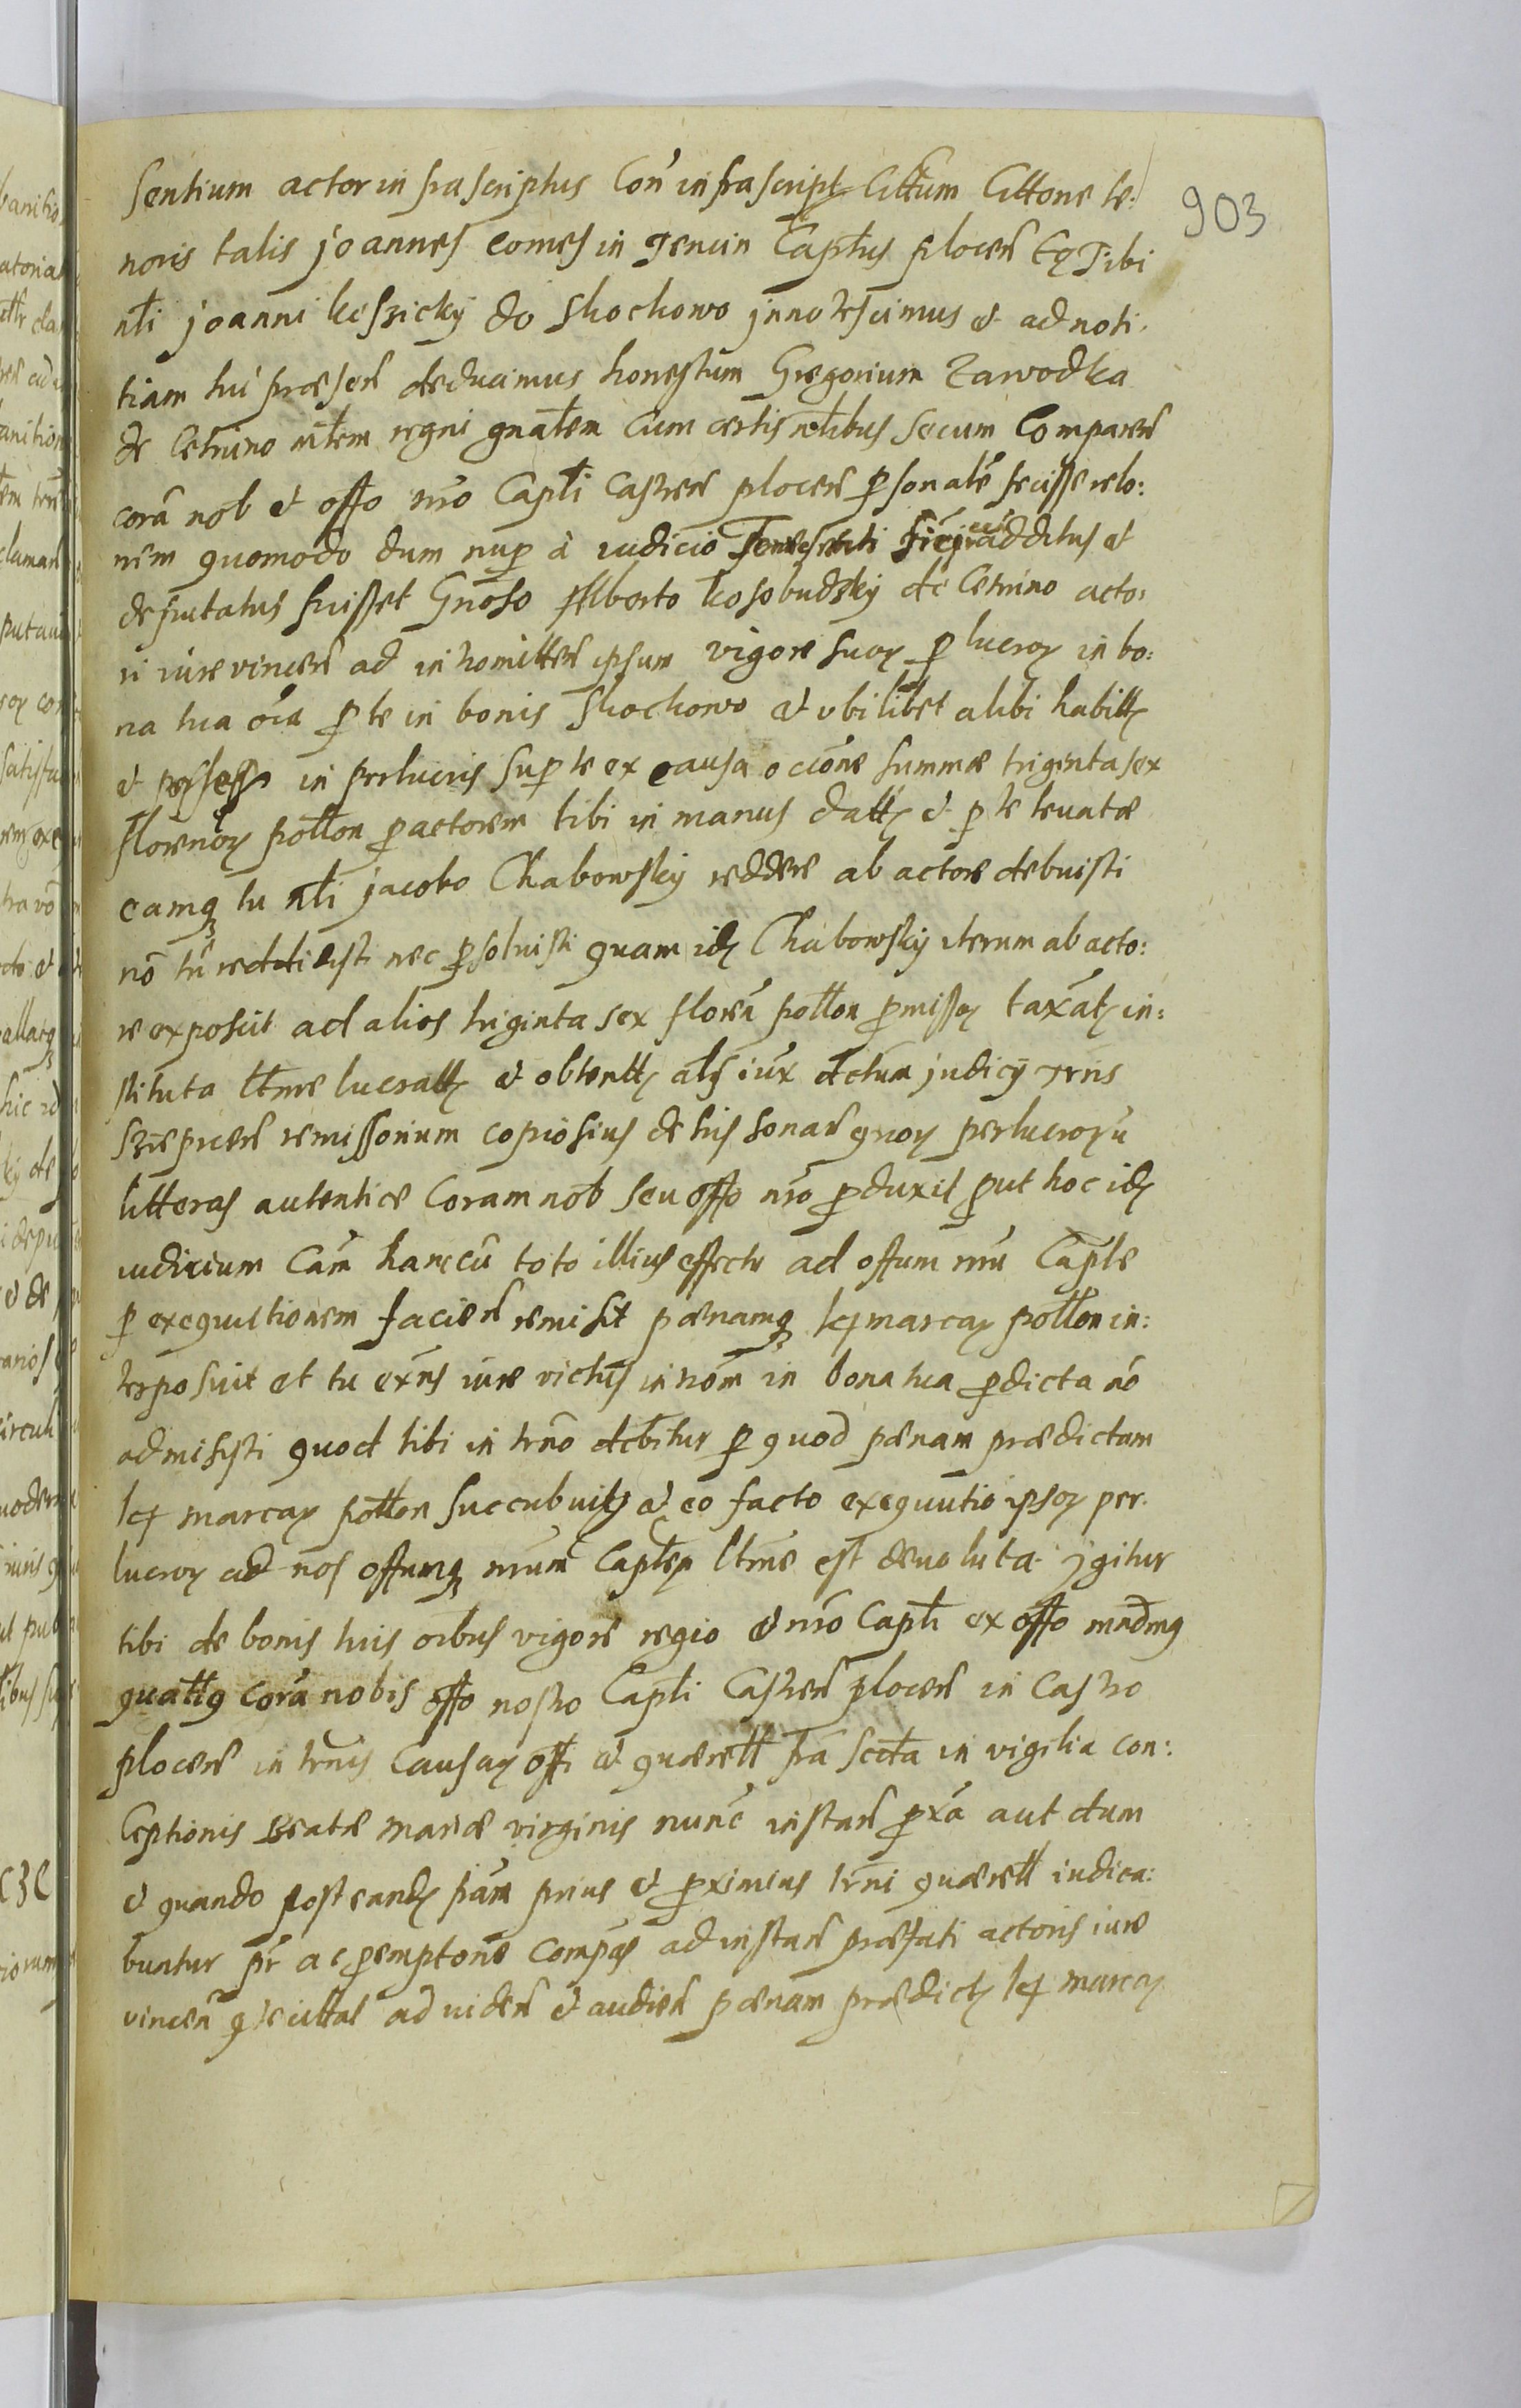 903
sentium actor infrascriptus Con infrascript Cittum Cittone te:
noris talis joannes comes in Tencin Captus plocen Eq Tibi
nli joanni keszicky do Skochowo jnnotescimus et ad noti:
tiam tui præsen deducimus honestum Gregorium Zawodka
de Cetnino mlem regni gnalem cum certis nlibus secum Comparen
corā nob et offo nro Capli Castren plocen psonale fecisse relo:
nem quomodo dum nup à iudicio additus et
deputatus fuisset Gnoso Alberto kosobudzky de Cetnino acto:
ri iure vincen ad intromitten ipsum vigore suoꝝ p lucroꝝ in bo:
na tua oīa p te in bonis Skochowo et vbilibet alibi habitt
et possess in perlucris sup te ex causa occōne summæ triginta sex
florenoꝝ pollon p actorem tibi in manus datt et p te levatæ
eamq tu nli jacobo Chabowsky reddere ab actore debuisti
nō tn reddidisti nec psolvisti quam idꝫ Chabowsky iterum ab acto:
re exposcit ad alios triginta sex floren pollon pmissoꝝ taxatꝫ in:
stituta ltme lucratt et obtentt als iux dctum judicij trris
Szreprcen remissorium copiosius de his sonan quoꝝ perlucroꝝū
litteras autentice Coram nob seu offo nro pduxit put hoc idꝫ
iudicium Cām hanc cū toto illius effectu ad offum nrū Caple
p exequutionem facien remisit pænamq marcaꝝ pollon in:
terposuit et tu exns iure victus introm in bona tua pdicta nō
admisisti quod tibi in trno debitur p quod pænam prædictam
marcaꝝ pollon succubuit et eo facto exequutio ipsoꝝ per:
lucroꝝ ad nos offumq nrum Caplem ltme est devoluta jgitur
tibi de bonis tuis oibus vigore regio et nro Capli ex offo mndmq
quattq corā nobis offo nostro Capli Castren plocen in Castro
plocen in trnis Causaꝝ offi et quærell fra Sccta in vigilia con:
Ceptionis Beatæ mariæ virginis nunc instan pxa aut dum
et quando posteandꝫ pām prius et pximius trni quærell iudica:
buntur pr ac pemptorie Compas ad instan præfati actoris iure
vincen q te cittat ad viden et audien pænam prædictꝫ marcaꝝ